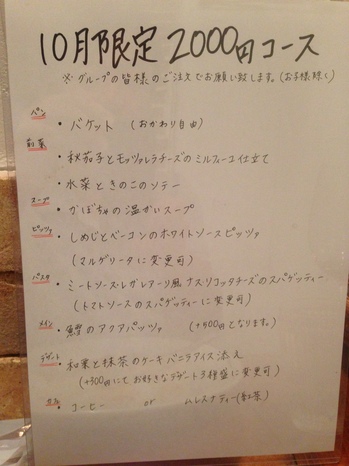 10月限定 2000円コース
※グループの皆様のご注文でお願い致します。(お子様除く)
パン
・バケット (おかわり自由)
前菜
・秋茄子とモッツァレラチーズのミルフィーユ仕立て
・水菜ときのこのソテー
スープ
・かぼちゃの温かいスープ
ピッツァ
・しめじとベーコンのホワイトソースピッツァ
(マルゲリータに変更可)
パスタ
・ミートソース・レガレアーリ風 ナス・リコッタチーズのスパゲッティー
(トマトソースのスパゲッティーに変更可)
メイン
・鱈のアクアパッツァ (+400円となります。)
デザート
・和栗と抹茶のケーキ バニラアイス添え
(+300円にてお好きなデザート3種盛に変更可)
・コーヒー or ムレスナティー(紅茶)